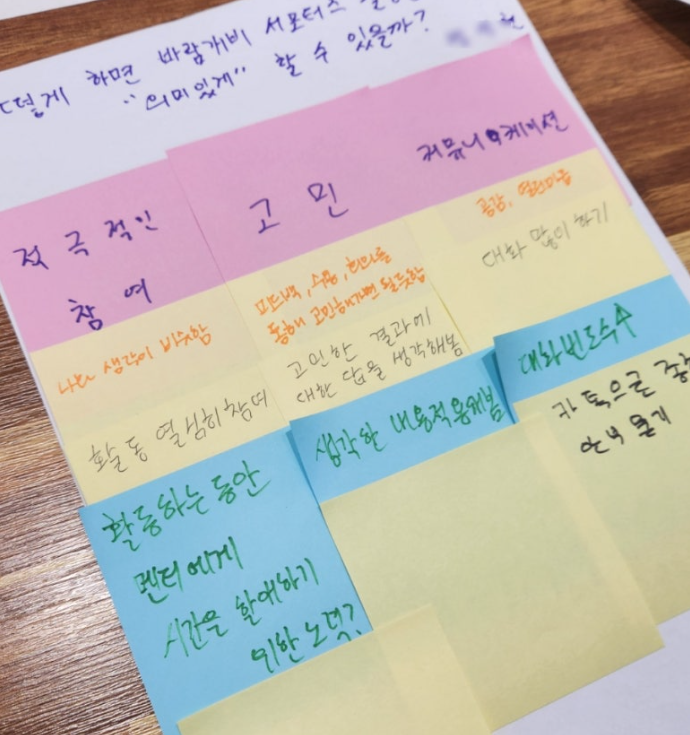 떻게 하면 바람개비 서포터즈
"의미있게" 할 수 있을까?
적극적인
참여
고민
커뮤니케이션
나와 생각이 비슷함
활동 열심히참여
피드백, 수행, 회의를
통해 고민해가면 될듯함
고민한 결과에
대한 답을 생각해봄
공감, 열린마음
대화 많이 하기
활동하는 동안
멘티에게
시간을 할애하기
위한 노력?
생각한 내용적용해봄
대화빈도수↑
카톡으로
안부 묻기